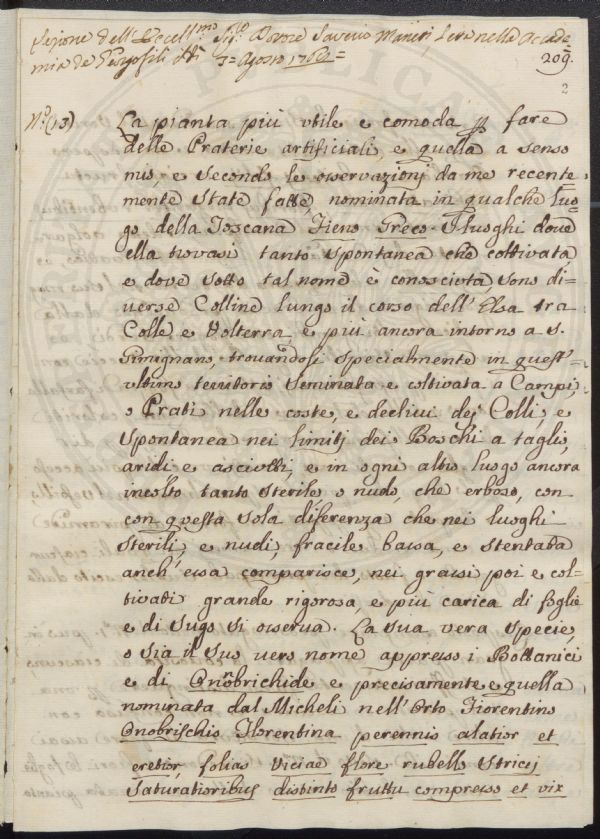 Lezione dell'Eccell.mo Sig.re Dottore Saverio Manetti, Letta nella Accade=
mia de Georgofili 7= Agosto 1765=
209.
2
N.o (13) La pianta più utile e comoda p fare
delle Praterie artificiali, e quella a senso
mio, e secondo le osservazionj da me recente=
mente State fatte, nominata in qualche luo=
go della Toscana Fieno Greco. I luoghi dove
ella trovasi tanto spontanea che coltivata
e dove sotto tal nome è conosciuta sono di=
verse Colline lungo il corso dell'Elsa tra
Colle e Volterra, e più ancora intorno a S.
Gimignano, trovandosi specialmente in quest'
ultimo territorio seminata e coltivata a Campi,
o Prati nelle coste, e declivi dej Colli, e
spontanea nei limitj dei Boschi a taglio,
aridi e asciutti, e in ogni altro luogo ancora
incolto tanto sterile o nudo, che erboso, con
con questa sola diferenza che nei luoghi
sterili, e nudi, fracile bassa, e stentata
anch'essa comparisce, nei grassi poi e col=
tivati grande rigorosa, e più carica di foglie
e di sugo si osserva. La sua vera specie,
o sia il suo vero nome appresso i Bottanici
e di Onobrichide e precisamente e quella
nominata dal Micheli nell'Orto Fiorentino
Onobrischis Florentina perennis alatior et
eretior, folias Viciae flore rubello Stricij
Saturatioribus distinto fruttu compresso et vix